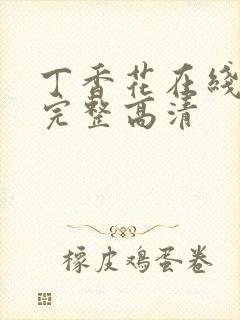 丁香花在綫
完整高清
橡皮鸡蛋卷